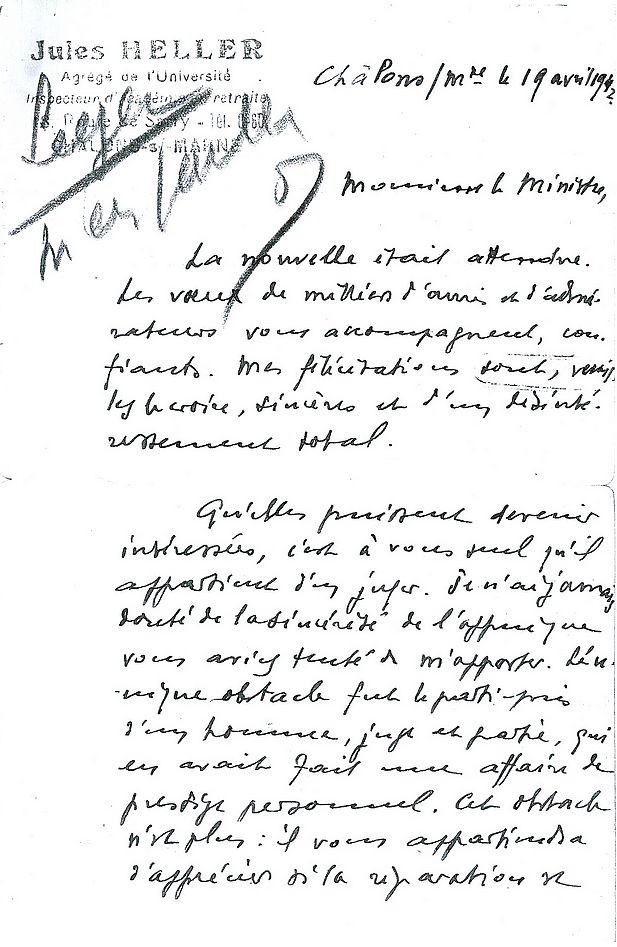 Jules HELLER
Agrégé de l'Université
Inspecteur d'Académie en retraite
Route de Sarry - Tél.
CHALONS-s/-MARNE
Châlons/Mne le 19 avril 1942
Monsieur le Ministre,
La nouvelle était attendue.
Les vœux de milliers d'amis et d'admi-
rateurs vous accompagnent, con-
fiants. Mes félicitations sont, veuil-
lez le croire, sincères et d'un désinté-
ressement total.
Qu'elles puissent devenir
intéressées, c'est à vous seul qu'il
appartient d'en juger. Je n'ai jamais
douté de la sincérité de l'appui que
vous aviez tenté de m'apporter. L'u-
nique obstacle fut le parti-pris
d'un homme, juge et partie, qui
en avait fait une affaire de
prestige personnel. Cet obstacle
n'est plus : il vous appartiendra
d'apprécier si la réparation est